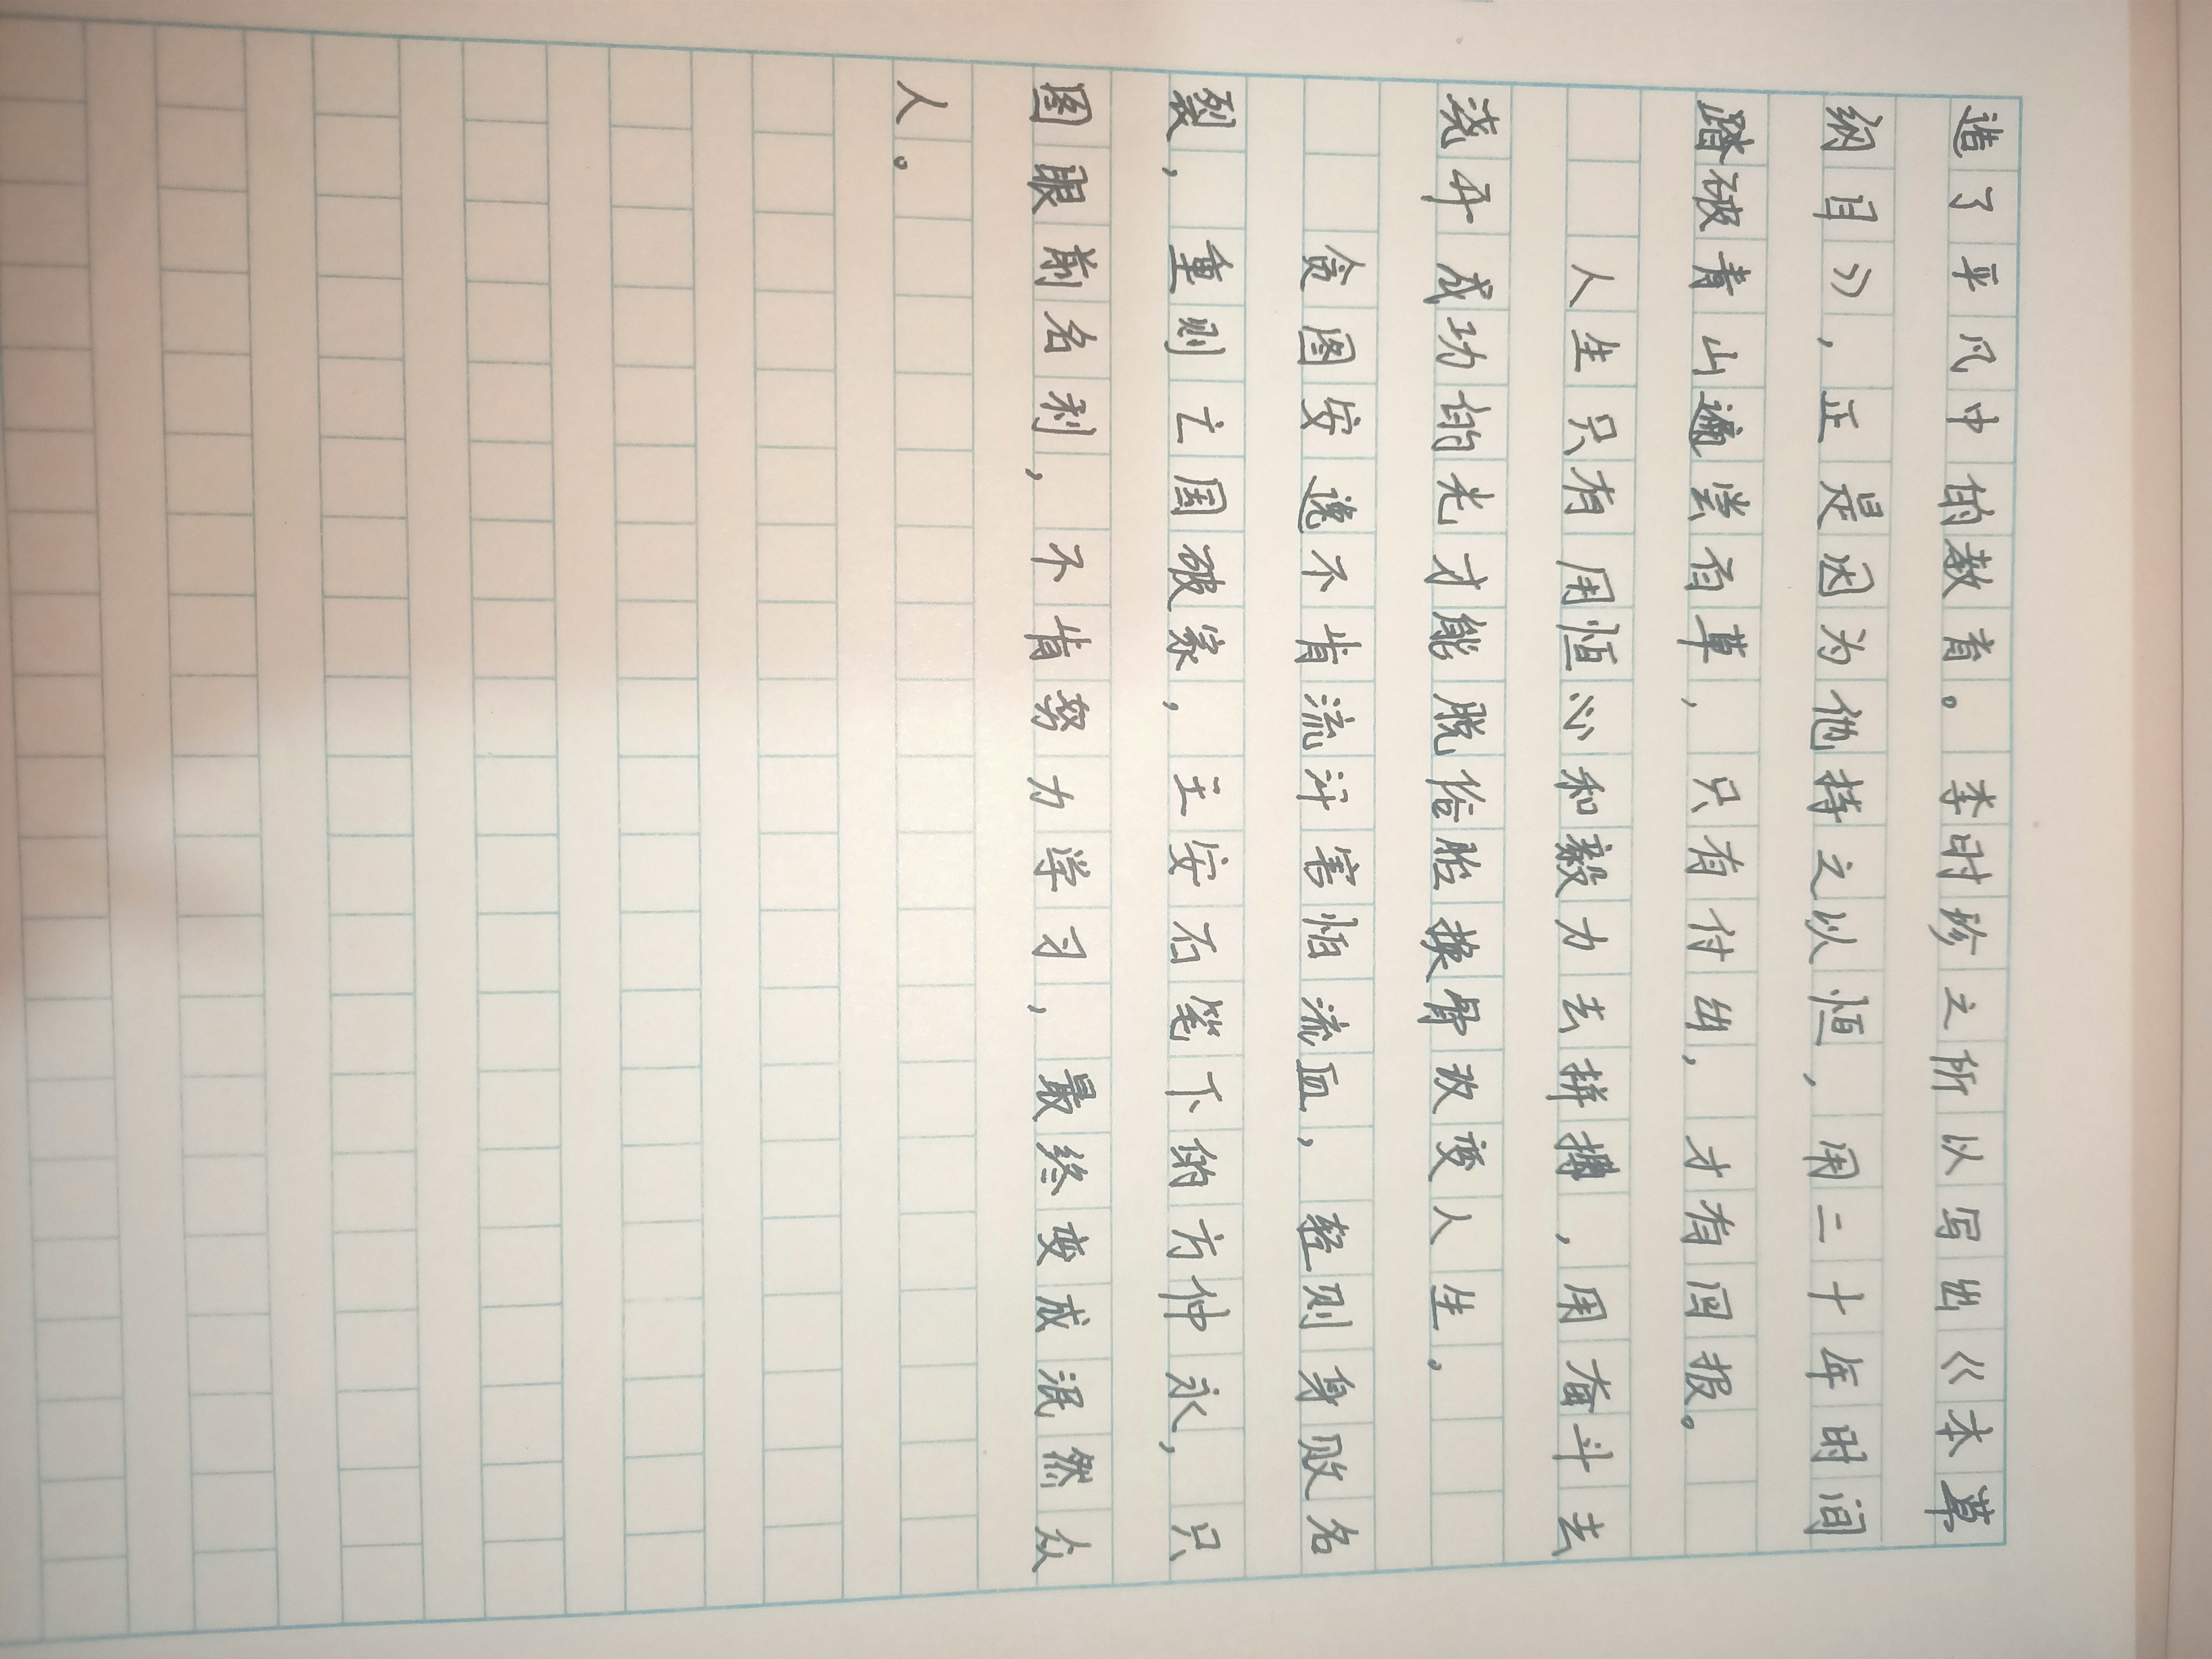 造了平凡中的教育。李时珍之所以写出《本草
纲目》，正是因为他持之以恒，用二十年时间
踏破青山遍尝百草，只有付出，才有回报。
人生只有用恒心和毅力去拼搏，用奋斗去
浇开成功的光才能脱俗胎换骨改变人生。
贪图安逸不肯流汗害怕流血，轻则身败名
裂，重则亡国破家，王安石笔下的方仲永，只
图眼前名利，不肯努力学习，最终变成泯然众
人。